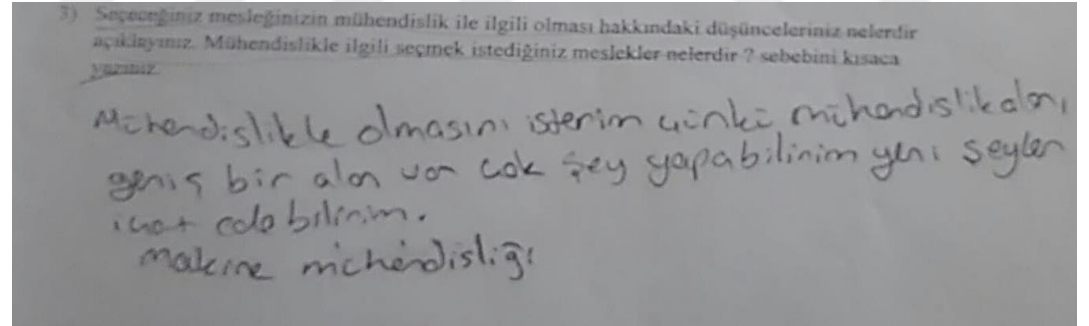 3) Seçeceğiniz mesleğinizin mühendislik ile ilgili olması hakkındaki düşünceleriniz nelerdir
açıklayınız. Mühendislikle ilgili seçmek istediğiniz meslekler nelerdir ? sebebini kısaca
yazınız.
Mühendislikle olmasını isterim çünkü mühendislik alanı
geniş bir alan var çok şey yapabilirim yeni şeyler
icat edebilirim.
Makine mühendisliği